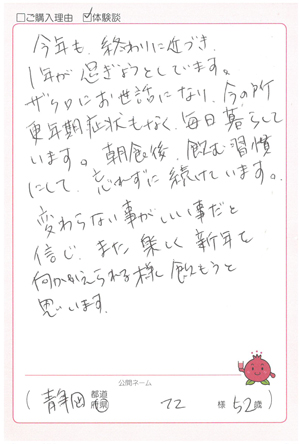 □ご購入理由 ☑体験談
今年も、終わりに近づき、
1年が過ぎようとしています。
ザクロにお世話になり、今の所
更年期症状もなく、毎日暮らして
います。朝食後、飲む習慣
にして、忘れずに続けています。
変わらない事がいい事だと
信じ、また楽しく新年を
向かえられる様、飲もうと
思います。
公開ネーム
(静岡 都道府県 様 52歳)